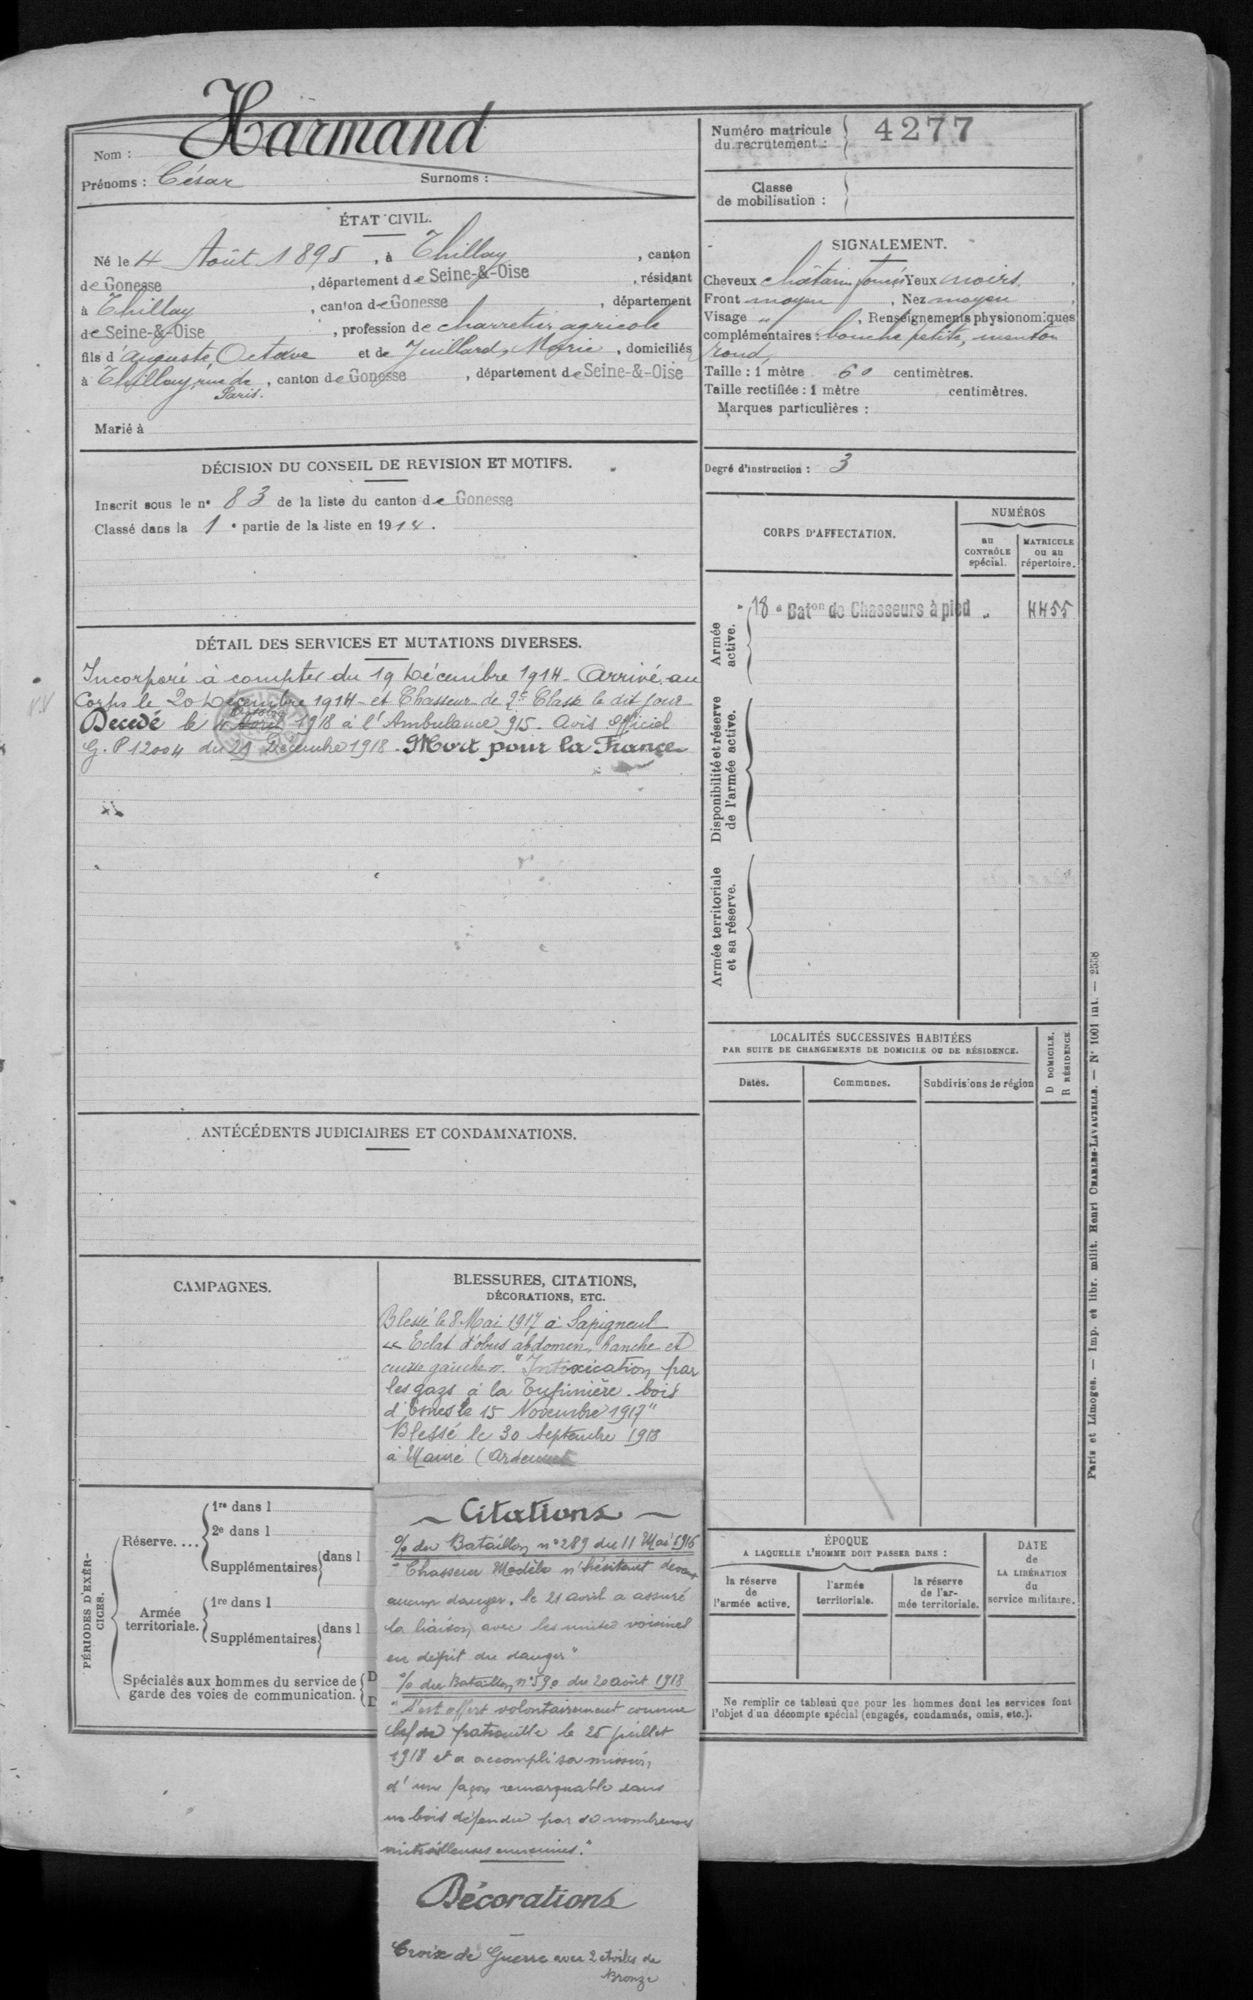 Nom : Harmand
Prénoms : César Surnoms :
ÉTAT CIVIL.
Né le 4 Août 1895, à Thillay, canton
de Gonesse, département de Seine-&-Oise, résidant
à Thillay, canton de Gonesse, département
de Seine-&-Oise, profession de charretier agricole
fils d'Auguste Octave et de Juillard, Marie, domiciliés
à Thillay, rue de Paris., canton de Gonesse, département de Seine-&-Oise
Marié à
DÉCISION DU CONSEIL DE REVISION ET MOTIFS.
Inscrit sous le n° 83 de la liste du canton de Gonesse
Classé dans la 1e partie de la liste en 1914.
DÉTAIL DES SERVICES ET MUTATIONS DIVERSES.
Incorporé à compter du 19 Décembre 1914 - Arrivé au
Corps le 20 Décembre 1914 - et Chasseur de 2e Classe le dit jour
Décédé le 4 Octobre 1918 à l'Ambulance 915. Avis officiel
G. P 12004 du 21 Décembre 1918. Mort pour la France
ANTÉCÉDENTS JUDICIAIRES ET CONDAMNATIONS.
CAMPAGNES.
BLESSURES, CITATIONS,
DÉCORATIONS, ETC.
Blessé le 8 Mai 1917 à Sapigneul
« Eclat d'obus abdomen, hanche et
cuisse gauche ». "Intoxication par
les gaz à la bois
d' le 15 Novembre 1917"
Blessé le 30 Septembre 1918
à (Ardennes
- Citations -
% du Bataillon n° 289 du 11 Mai 1916
" Chasseur Modèle n'hésitant devant
aucun danger. le 21 avril a assuré
la liaison avec les unités voisines
en dépit du danger"
% du Bataillon n° 590 du 20 août 1918
" S'est offert volontairement comme
chef de patrouille le 25 juillet
1918 et a accompli sa mission
d'une façon remarquable dans
un bois défendu par de nombreuses
mitrailleuses ennemies."
Décorations
Croix de Guerre avec 2 étoiles de
Bronze
PÉRIODES D'EXERCICES.
Réserve....
1re dans l
2e dans l
Supplémentaires dans l
Armée territoriale.
1re dans l
Supplémentaires dans l
Spéciales aux hommes du service de
garde des voies de communication.
D
D
Numéro matricule
du recrutement : 4277
Classe
de mobilisation :
SIGNALEMENT.
Cheveux châtain foncé Yeux noirs
Front moyen, Nez moyen
Visage ", Renseignements physionomiques
complémentaires : bouche petite, menton
rond,
Taille : 1 mètre 60 centimètres.
Taille rectifiée : 1 mètre centimètres.
Marques particulières :
Degré d'instruction : 3
CORPS D'AFFECTATION.
NUMÉROS
au CONTRÔLE spécial.
MATRICULE ou au répertoire.
Armée active.
18e Baton de Chasseurs à pied " 4455
Disponibilité et réserve de l'armée active.
Armée territoriale et sa réserve.
LOCALITÉS SUCCESSIVES HABITÉES
PAR SUITE DE CHANGEMENTS DE DOMICILE OU DE RÉSIDENCE.
Dates. Communes. Subdivisions de région
D DOMICILE.
R RÉSIDENCE
ÉPOQUE
A LAQUELLE L'HOMME DOIT PASSER DANS :
la réserve de l'armée active.
l'armée territoriale.
la réserve de l'armée territoriale.
DATE
de
LA LIBÉRATION
du
service militaire.
Ne remplir ce tableau que pour les hommes dont les services font
l'objet d'un décompte spécial (engagés, condamnés, omis, etc.).
Paris et Limoges. — Imp. et libr. milit. Henri CHARLES-LAVAUZELLE. — N° 1001 int. — 2558